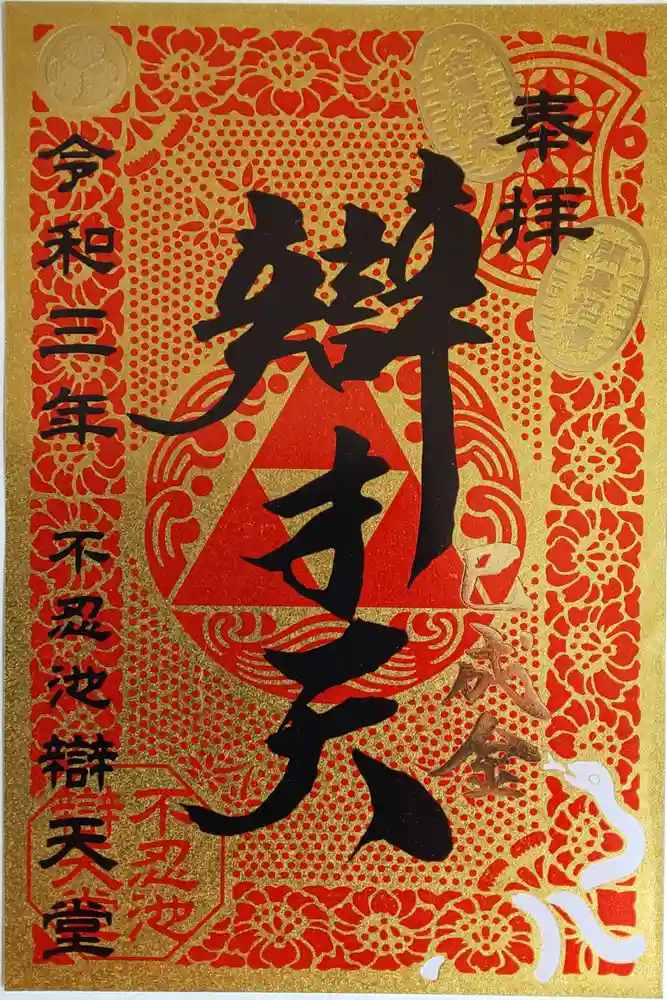 奉拝
辯才天
巳成金
令和三年 不忍池辯天堂
不忍池
辯天堂